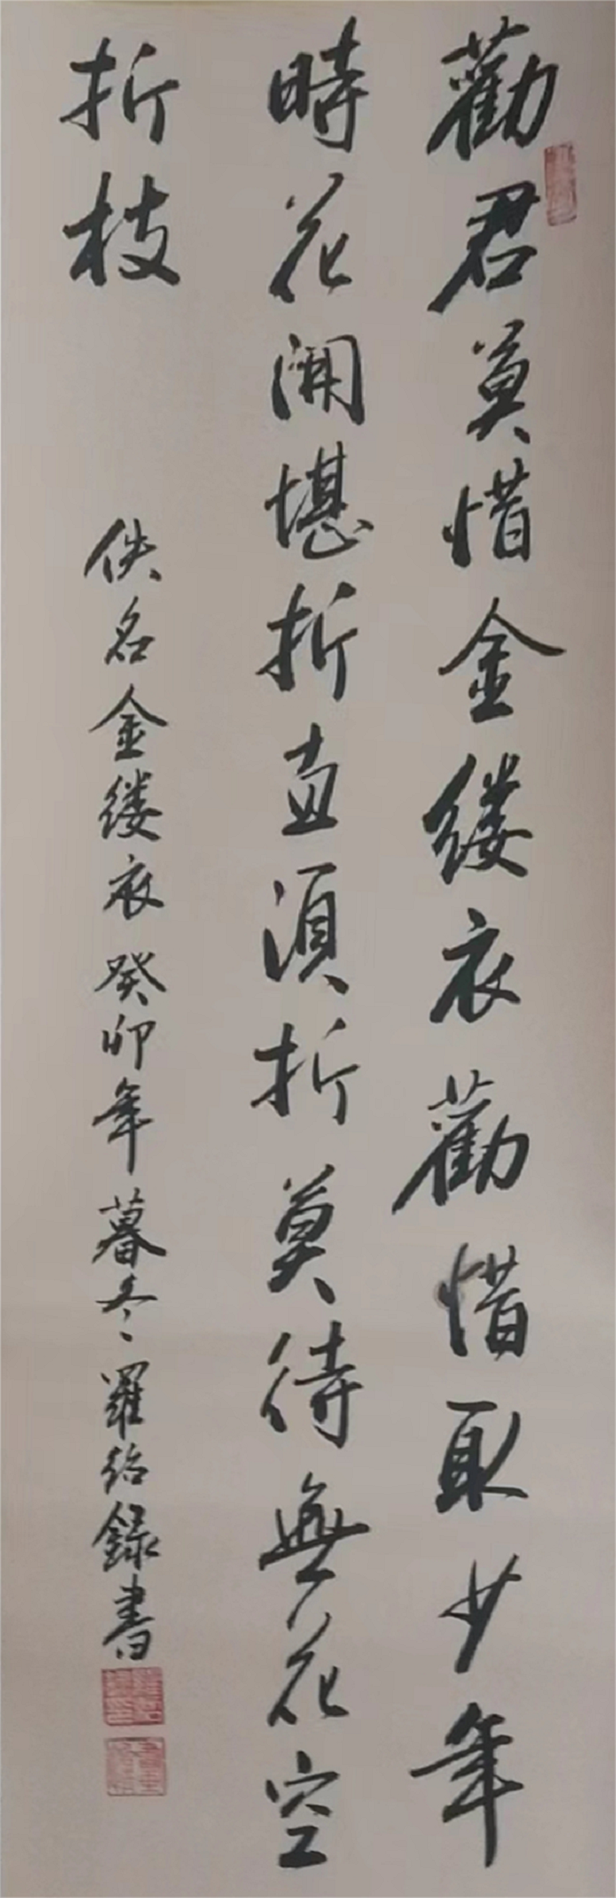 勸君莫惜金缕衣勸惜取少年
時花開堪折直須折莫待無花空
折枝
佚名金缕衣癸卯年暮冬羅紹錄書